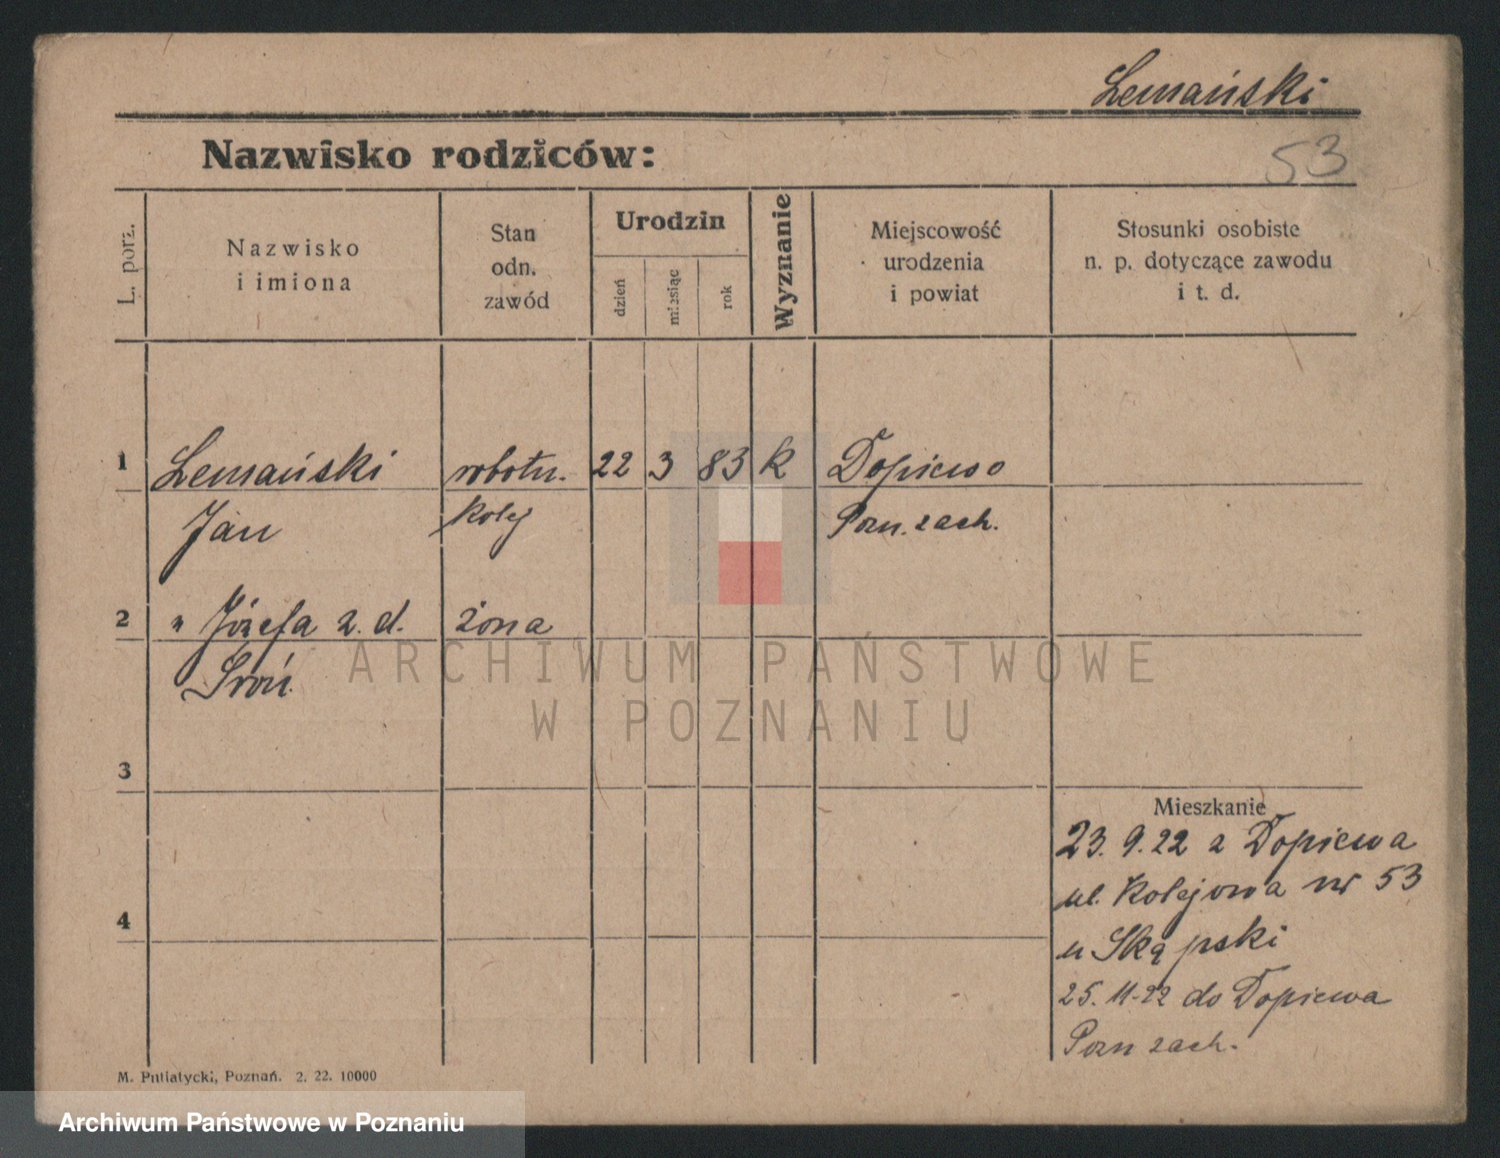 Lemański
Nazwisko rodziców:
53
L. porz.
Nazwisko
i imiona
Stan
odn.
zawód
Urodzin
dzień
miesiąc
rok
Wyznanie
Miejscowość
urodzenia
i powiat
Stosunki osobiste
n. p. dotyczące zawodu
i t. d.
1 Lemański robotn. 22 3 83 k Dopiewo
Jan kolej Pozn. zach.
2 " Józefa z. d. żona
Sroń
ARCHIWUM PAŃSTWOWE
W POZNANIU
3
Mieszkanie
23. 9. 22 z Dopiewa
ul. Kolejowa nr 53
4
u Skąpski
25. 11. 22 do Dopiewa
Pozn zach.
M. Putiatycki, Poznań. 2. 22. 10000
Archiwum Państwowe w Poznaniu